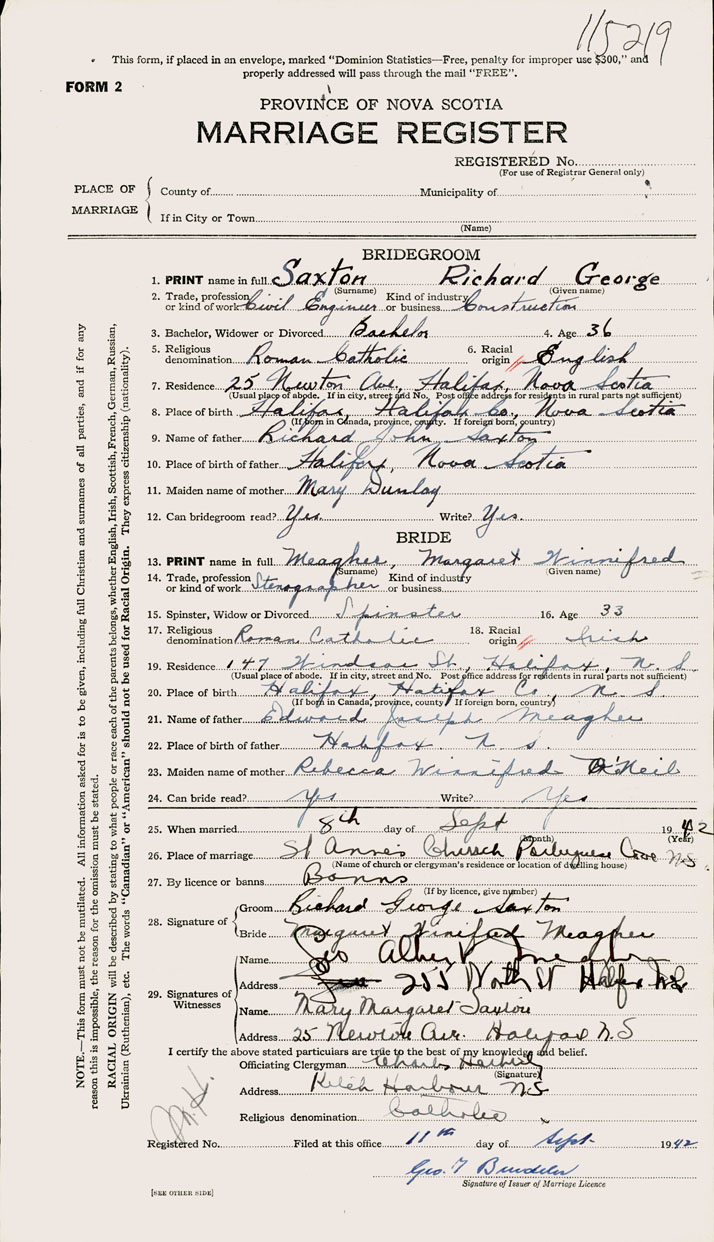 115219
This form, if placed in an envelope, marked "Dominion Statistics—Free, penalty for improper use $300," and
properly addressed will pass through the mail "FREE".
FORM 2
PROVINCE OF NOVA SCOTIA
MARRIAGE REGISTER
REGISTERED No.
(For use of Registrar General only)
PLACE OF MARRIAGE
County of Municipality of
If in City or Town
(Name)
BRIDEGROOM
1. PRINT name in full Saxton Richard George
(Surname) (Given name)
2. Trade, profession or kind of work Civil Engineer Kind of industry or business Construction
3. Bachelor, Widower or Divorced Bachelor 4. Age 36
5. Religious denomination Roman Catholic 6. Racial origin English
7. Residence 25 Newton Ave., Halifax, Nova Scotia
(Usual place of abode. If in city, street and No. Post office address for residents in rural parts not sufficient)
8. Place of birth Halifax, Halifax Co., Nova Scotia
(If born in Canada, province, county. If foreign born, country)
9. Name of father Richard John Saxton
10. Place of birth of father Halifax, Nova Scotia
11. Maiden name of mother Mary Dunlop
12. Can bridegroom read? Yes. Write? Yes.
BRIDE
13. PRINT name in full Meagher, Margaret Winnifred
(Surname) (Given name)
14. Trade, profession or kind of work Stenographer Kind of industry or business
15. Spinster, Widow or Divorced Spinster 16. Age 33
17. Religious denomination Roman Catholic 18. Racial origin Irish
19. Residence 147 Windsor St., Halifax, N. S
(Usual place of abode. If in city, street and No. Post office address for residents in rural parts not sufficient)
20. Place of birth Halifax, Halifax Co., N. S
(If born in Canada, province, county If foreign born, country)
21. Name of father Edward Joseph Meagher
22. Place of birth of father Halifax N. S.
23. Maiden name of mother Rebecca Winnifred O'Neil
24. Can bride read? Yes Write? Yes
25. When married 8th day of Sept 1942
(Month) (Year)
26. Place of marriage St Anne's Church Portuguese Cove N.S.
(Name of church or clergyman's residence or location of dwelling house)
27. By licence or banns Banns
(If by licence, give number)
28. Signature of
Groom Richard George Saxton
Bride Margaret Winifred Meagher
29. Signatures of Witnesses
Name Geo
Address 255 North St Halifax N.S.
Name Mary Margaret Saxton
Address 25 Newton Ave. Halifax N.S
I certify the above stated particulars are true to the best of my knowledge and belief.
Officiating Clergyman Charles
(Signature)
Address Ketch Harbour N.S
Religious denomination Catholic
Registered No. Filed at this office 11th day of Sept. 1942
Geo. T
Signature of Issuer of Marriage Licence
[SEE OTHER SIDE]
NOTE.—This form must not be mutilated. All information asked for is to be given, including full Christian and surnames of all parties, and if for any
reason this is impossible, the reason for the omission must be stated.
RACIAL ORIGIN will be described by stating to what people or race each of the parents belongs, whether English, Irish, Scottish, French, German, Russian,
Ukrainian (Ruthenian), etc. The words "Canadian" or "American" should not be used for Racial Origin. They express citizenship (nationality).